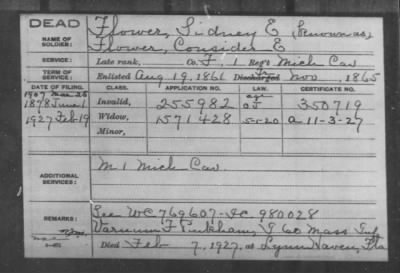 DEAD
NAME OF SOLDIER:
Flower, Sidney E (known as)
Flower, Consider E
SERVICE:
Late rank, Co. F, 1 Reg't Mich Cav
TERM OF SERVICE:
Enlisted Aug 19, 1861 Discharged Nov 1865
DATE OF FILING. CLASS. APPLICATION NO. LAW. CERTIFICATE NO.
1907 Mar 26 age
1878 June 1 Invalid, 255982 350719
1927 Feb 19 Widow, 1571428 5-1-20 a 11-3-27
Minor,
ADDITIONAL SERVICES:
M 1 Mich Cav
REMARKS:
See WC 769607-IC 980028
Varnum F Pinkham, I 60 Mass Inf
Died Feb 7, 1927, at Lynn Haven, Fla